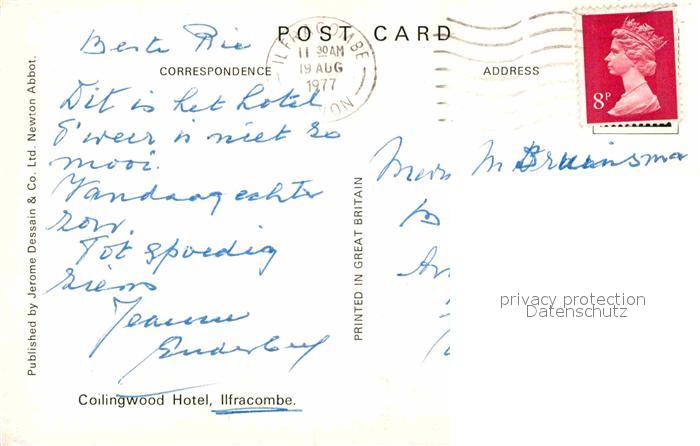 POST CARD
CORRESPONDENCE
ADDRESS
ILFRACOMBE
11 30AM
19 AUG
1977
8P
Beste Rie
Dit is het hotel
't weer is niet zo
mooi.
Vandaag echter
zon.
Tot spoedig
ziens
Jeanne
Collingwood Hotel, Ilfracombe.
Published by Jerome Dessain & Co. Ltd. Newton Abbot.
PRINTED IN GREAT BRITAIN
M Bruinsma
privacy protection
Datenschutz